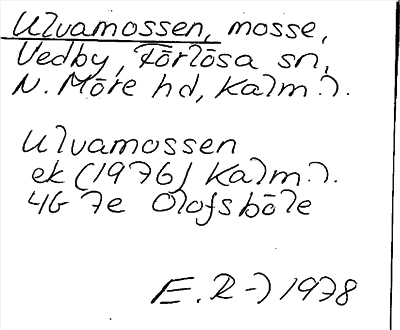 Ulvamossen, mosse,
Vedby, Förlösa sn,
N. Möre hd, Kalm.l.
Ulvamossen
ek (1976) Kalm.l.
4G 7e Olofsböle
E.R-l 1978